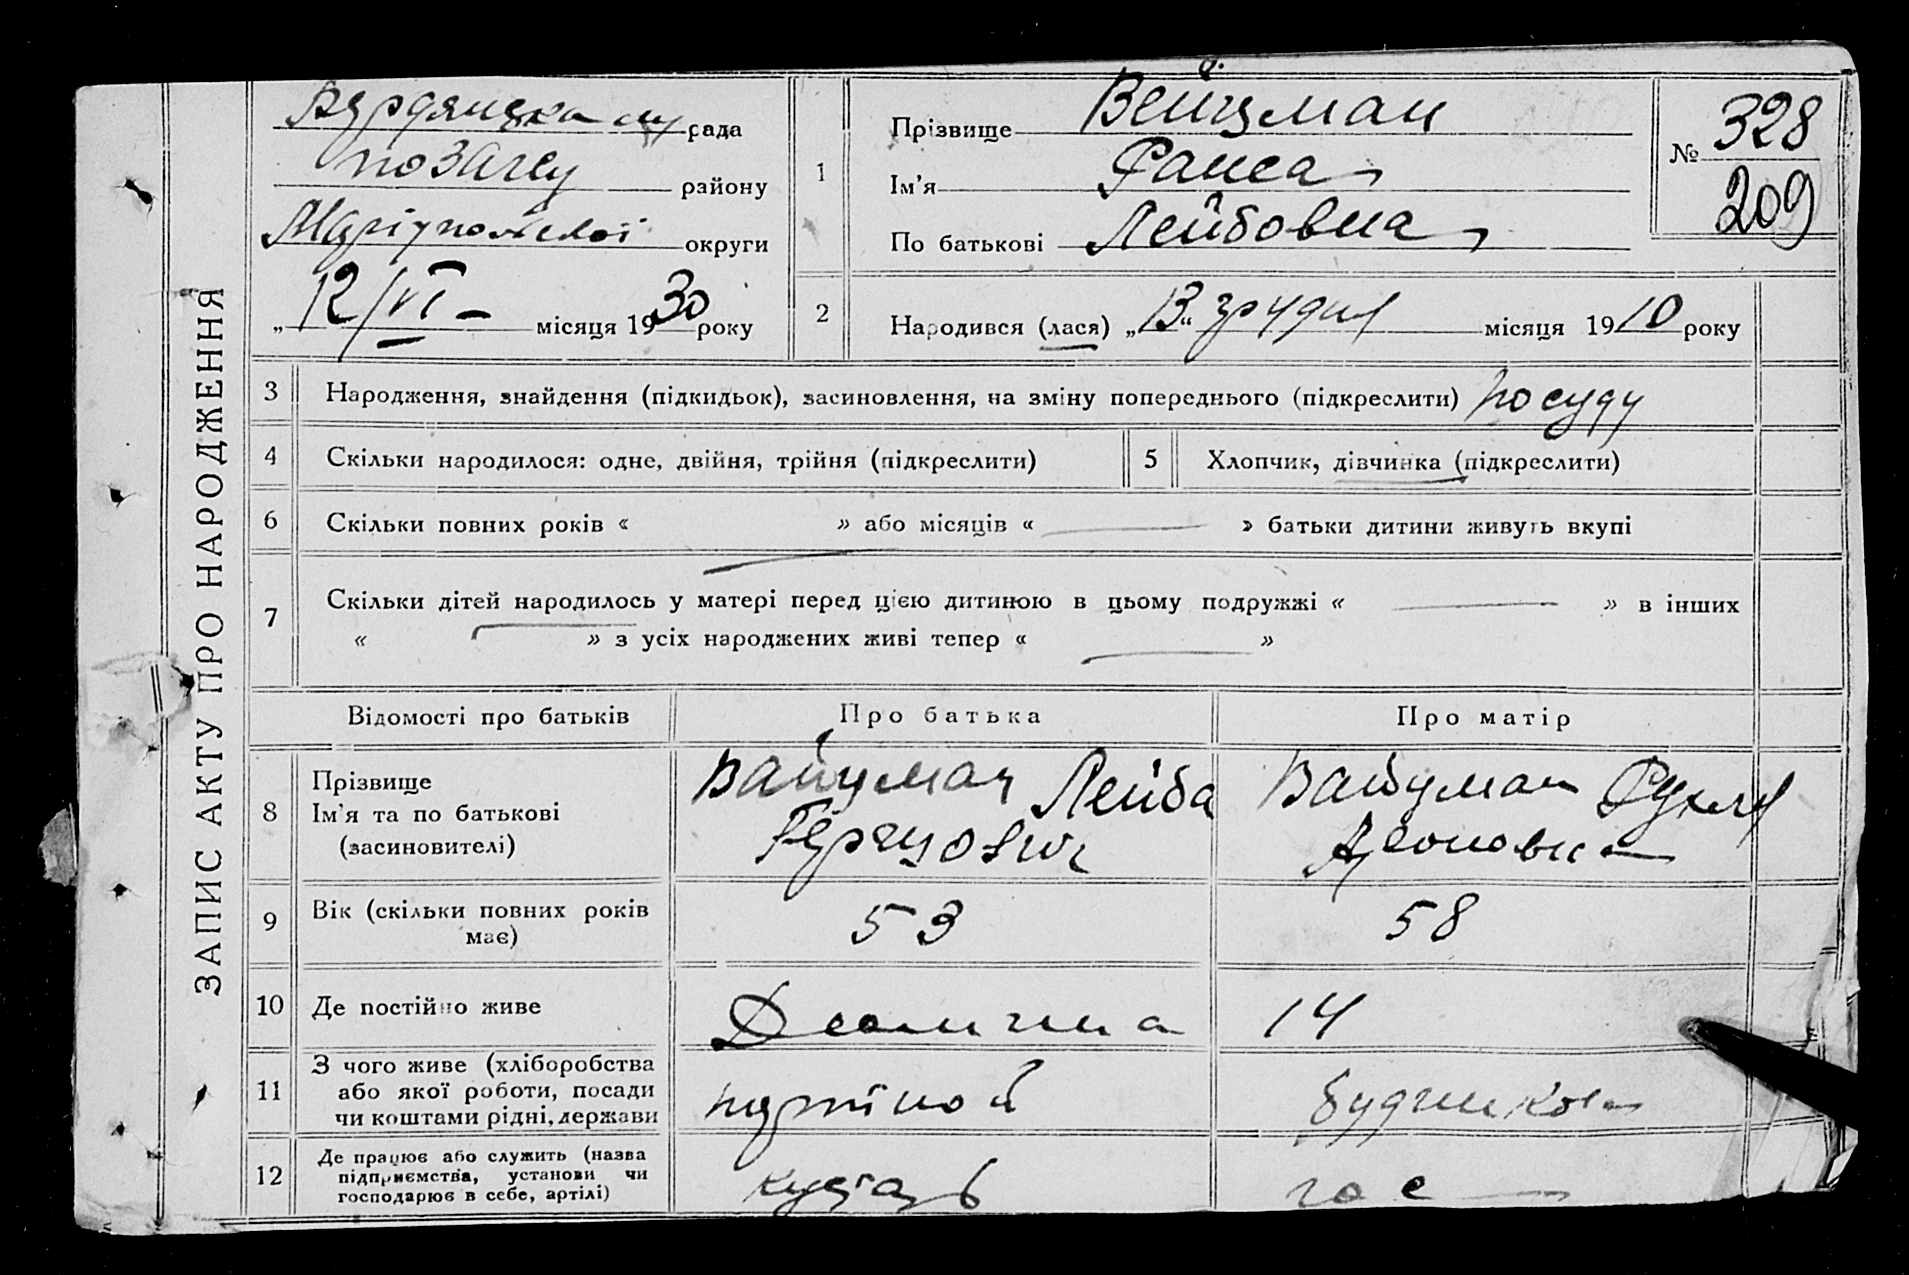 ЗАПИС АКТУ ПРО НАРОДЖЕННЯ
Бердянська рада
району
Маріупольскої округи
„12/VI – місяця 1930 року
1
Прізвище Вейцман
Ім'я Раиса
По батькові Лейбовна
№ 328
209
2
Народився (лася) „13“ грудня місяця 1910 року
3 Народження, знайдення (підкидьок), засиновлення, на зміну попереднього (підкреслити) по суду
4 Скільки народилося: одне, двійня, трійня (підкреслити)
5 Хлопчик, дівчинка (підкреслити)
6 Скільки повних років « » або місяців « » батьки дитини живуть вкупі
7 Скільки дітей народилось у матері перед цією дитиною в цьому подружжі « » в інших
« » з усіх народжених живі тепер « »
Відомості про батьків Про батька Про матір
8 Прізвище
Ім'я та по батькові
(засиновителі)
Вайцман Лейба
Герцович
Вайцман Рухля
9 Вік (скільки повних років має)
53 58
10 Де постійно живе
14
11 З чого живе (хліборобства
або якої роботи, посади
чи коштами рідні, держави
12 Де працює або служить (назва
підприємства, установи чи
господарює в себе, артілі)
кустарь